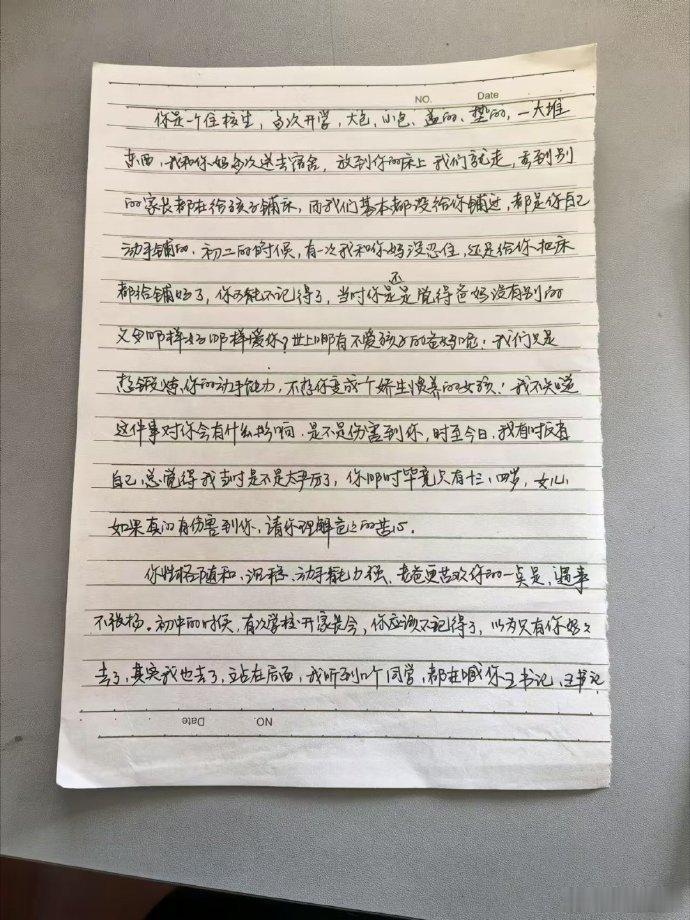 NO. Date
你是一个住校生，每次开学，大包、小包、盖的、垫的，一大堆
东西，我和你妈每次送去宿舍，放到你的床上我们就走，看到别
的家长都在给孩子铺床，而我们基本都没给你铺过，都是你自己
动手铺的。初二的时候，有一次我和你妈没忍住，还是给你把床
都给铺好了，你可能不记得了，当时你是还是觉得爸妈没有别的
父母那样好那样爱你？世上哪有不爱孩子的爸妈呢！我们只是
想锻炼你的动手能力，不想你变成个娇生惯养的女孩！我不知道
这件事对你会有什么影响，是不是伤害到你，时至今日，我有时反省
自己，总觉得我当时是不是太严厉了，你那时毕竟只有十三、四岁，女儿，
如果真的有伤害到你，请你理解爸爸的苦心。
你性格随和、沉稳、动手能力强，老爸更喜欢你的一点是，遇事
不张扬。初中的时候，有次学校开家长会，你应该不记得了，以为只有你妈妈
去了，其实我也去了，站在后面，我听到几个同学，都在喊你王书记，王书记
NO. Date